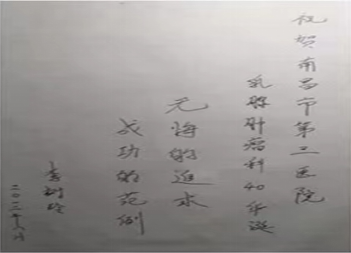 祝贺南昌市第三医院
乳腺肿瘤科40年诞
无悔的追求
成功的范例
李树玲
二〇一三年八月